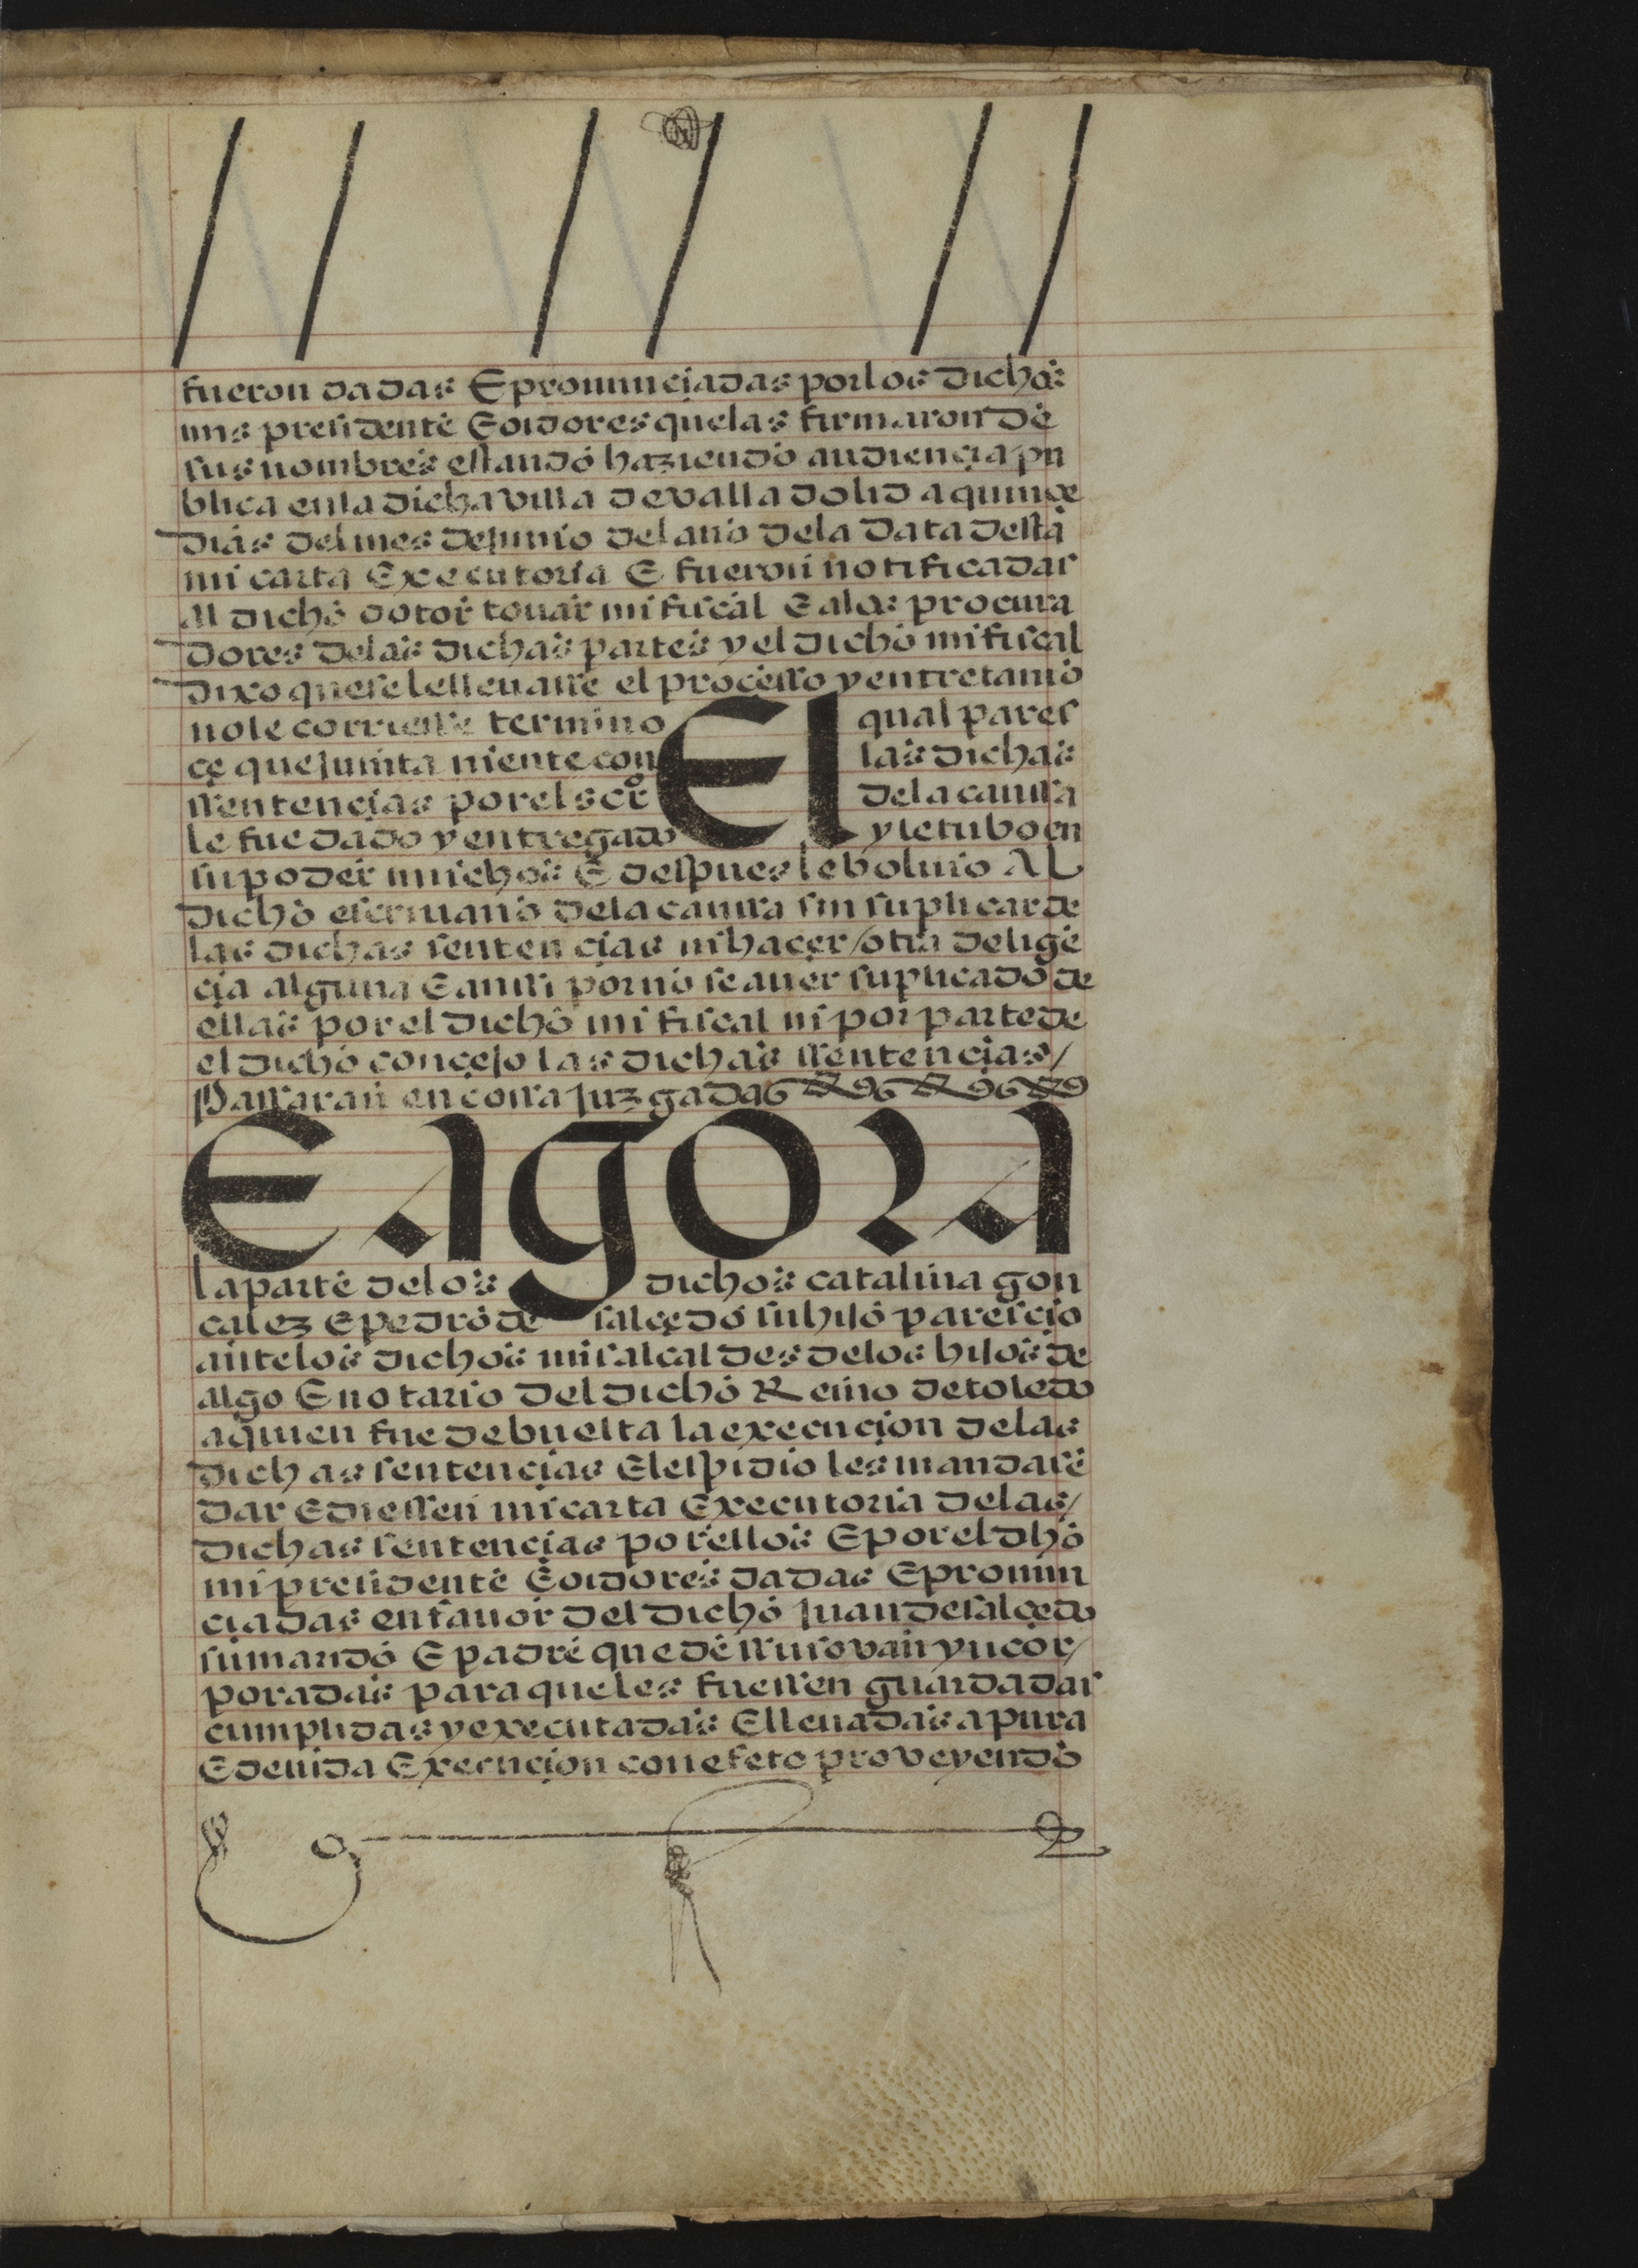 fueron dadas E pronunciadas por los dichos
mis presidente E oidores que las firmaron de
sus nombres estando haziendo audiencia pu
blica en la dicha villa de valladolid a quinçe
dias del mes de junio del año de la data desta
mi carta Executoria E fueron notificadas
Al dicho dotor touar mi fiscal E a los procura
dores de las dichas partes y el dicho mi fiscal
dixo que se le lleuasse el proçesso y entretanto
no le corriesse termino El qual pares
çe que junta mente con las dichas
ssentençias por el scro de la caussa
le fue dado y entregado y le tubo en
su poder muchos E despues le boluio AL
dicho escriuano de la caussa sin suplicar de
las dichas sentençias ni haçer / otra deligẽ
çia alguna E anssi por no se auer suplicado de
ellas por el dicho mi fiscal ni por parte de
el dicho conçejo las dichas ssentençias /
Passaran en cossa juzgadas
E agora
la parte de los dichos catalina gon
calez E pedro de salçedo su hijo paresçio
ante los dichos mis alcaldes de los hijos de
algo E notario del dicho Reino de toledo
a quien fue debuelta la execuçion de las
dichas sentençias E les pidio les mandase
dar E diessen mi carta Executoria de las /
dichas sentençias por ellos E por el dho
mi presidente E oidores dadas E pronun
çiadas en fauor del dicho juan de salçedo
su marido E padre que de ssuso van yncor /
poradas para que les fuessen guardadas
cumplidas y executadas E lleuadas a pura
E deuida Execuçion con efeto proveyendo